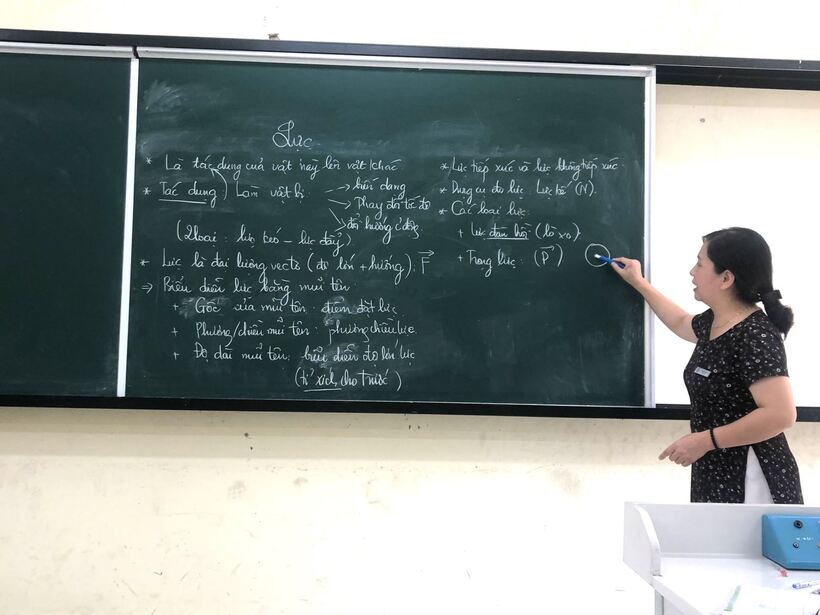 Lực
* Là tác dụng của vật này lên vật khác
* Tác dụng: Làm vật bị → biến dạng
→ Thay đổi tốc độ
→ đổi hướng c/động
(2 loại: lực kéo - lực đẩy)
* Lực là đại lượng vectơ (độ lớn + hướng): F⃗
⇒ Biểu diễn lực bằng mũi tên:
+ Gốc của mũi tên: điểm đặt lực
+ Phương/chiều mũi tên: phương chiều lực
+ Độ dài mũi tên: biểu diễn độ lớn lực
(tỉ xích cho trước)
* Lực tiếp xúc và lực không tiếp xúc
* Dụng cụ đo lực: Lực kế (N).
* Các loại lực:
+ Lực đàn hồi (lò xo)
+ Trọng lực: (P⃗)